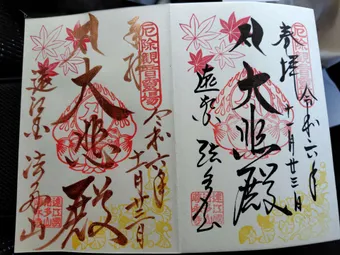 厄除観音霊場
奉拝
令和六年
十一月廿三日
大悲殿
法多山
厄除観音霊場
奉拝
令和六年
十一月廿三日
大悲殿
遠江国 法多山